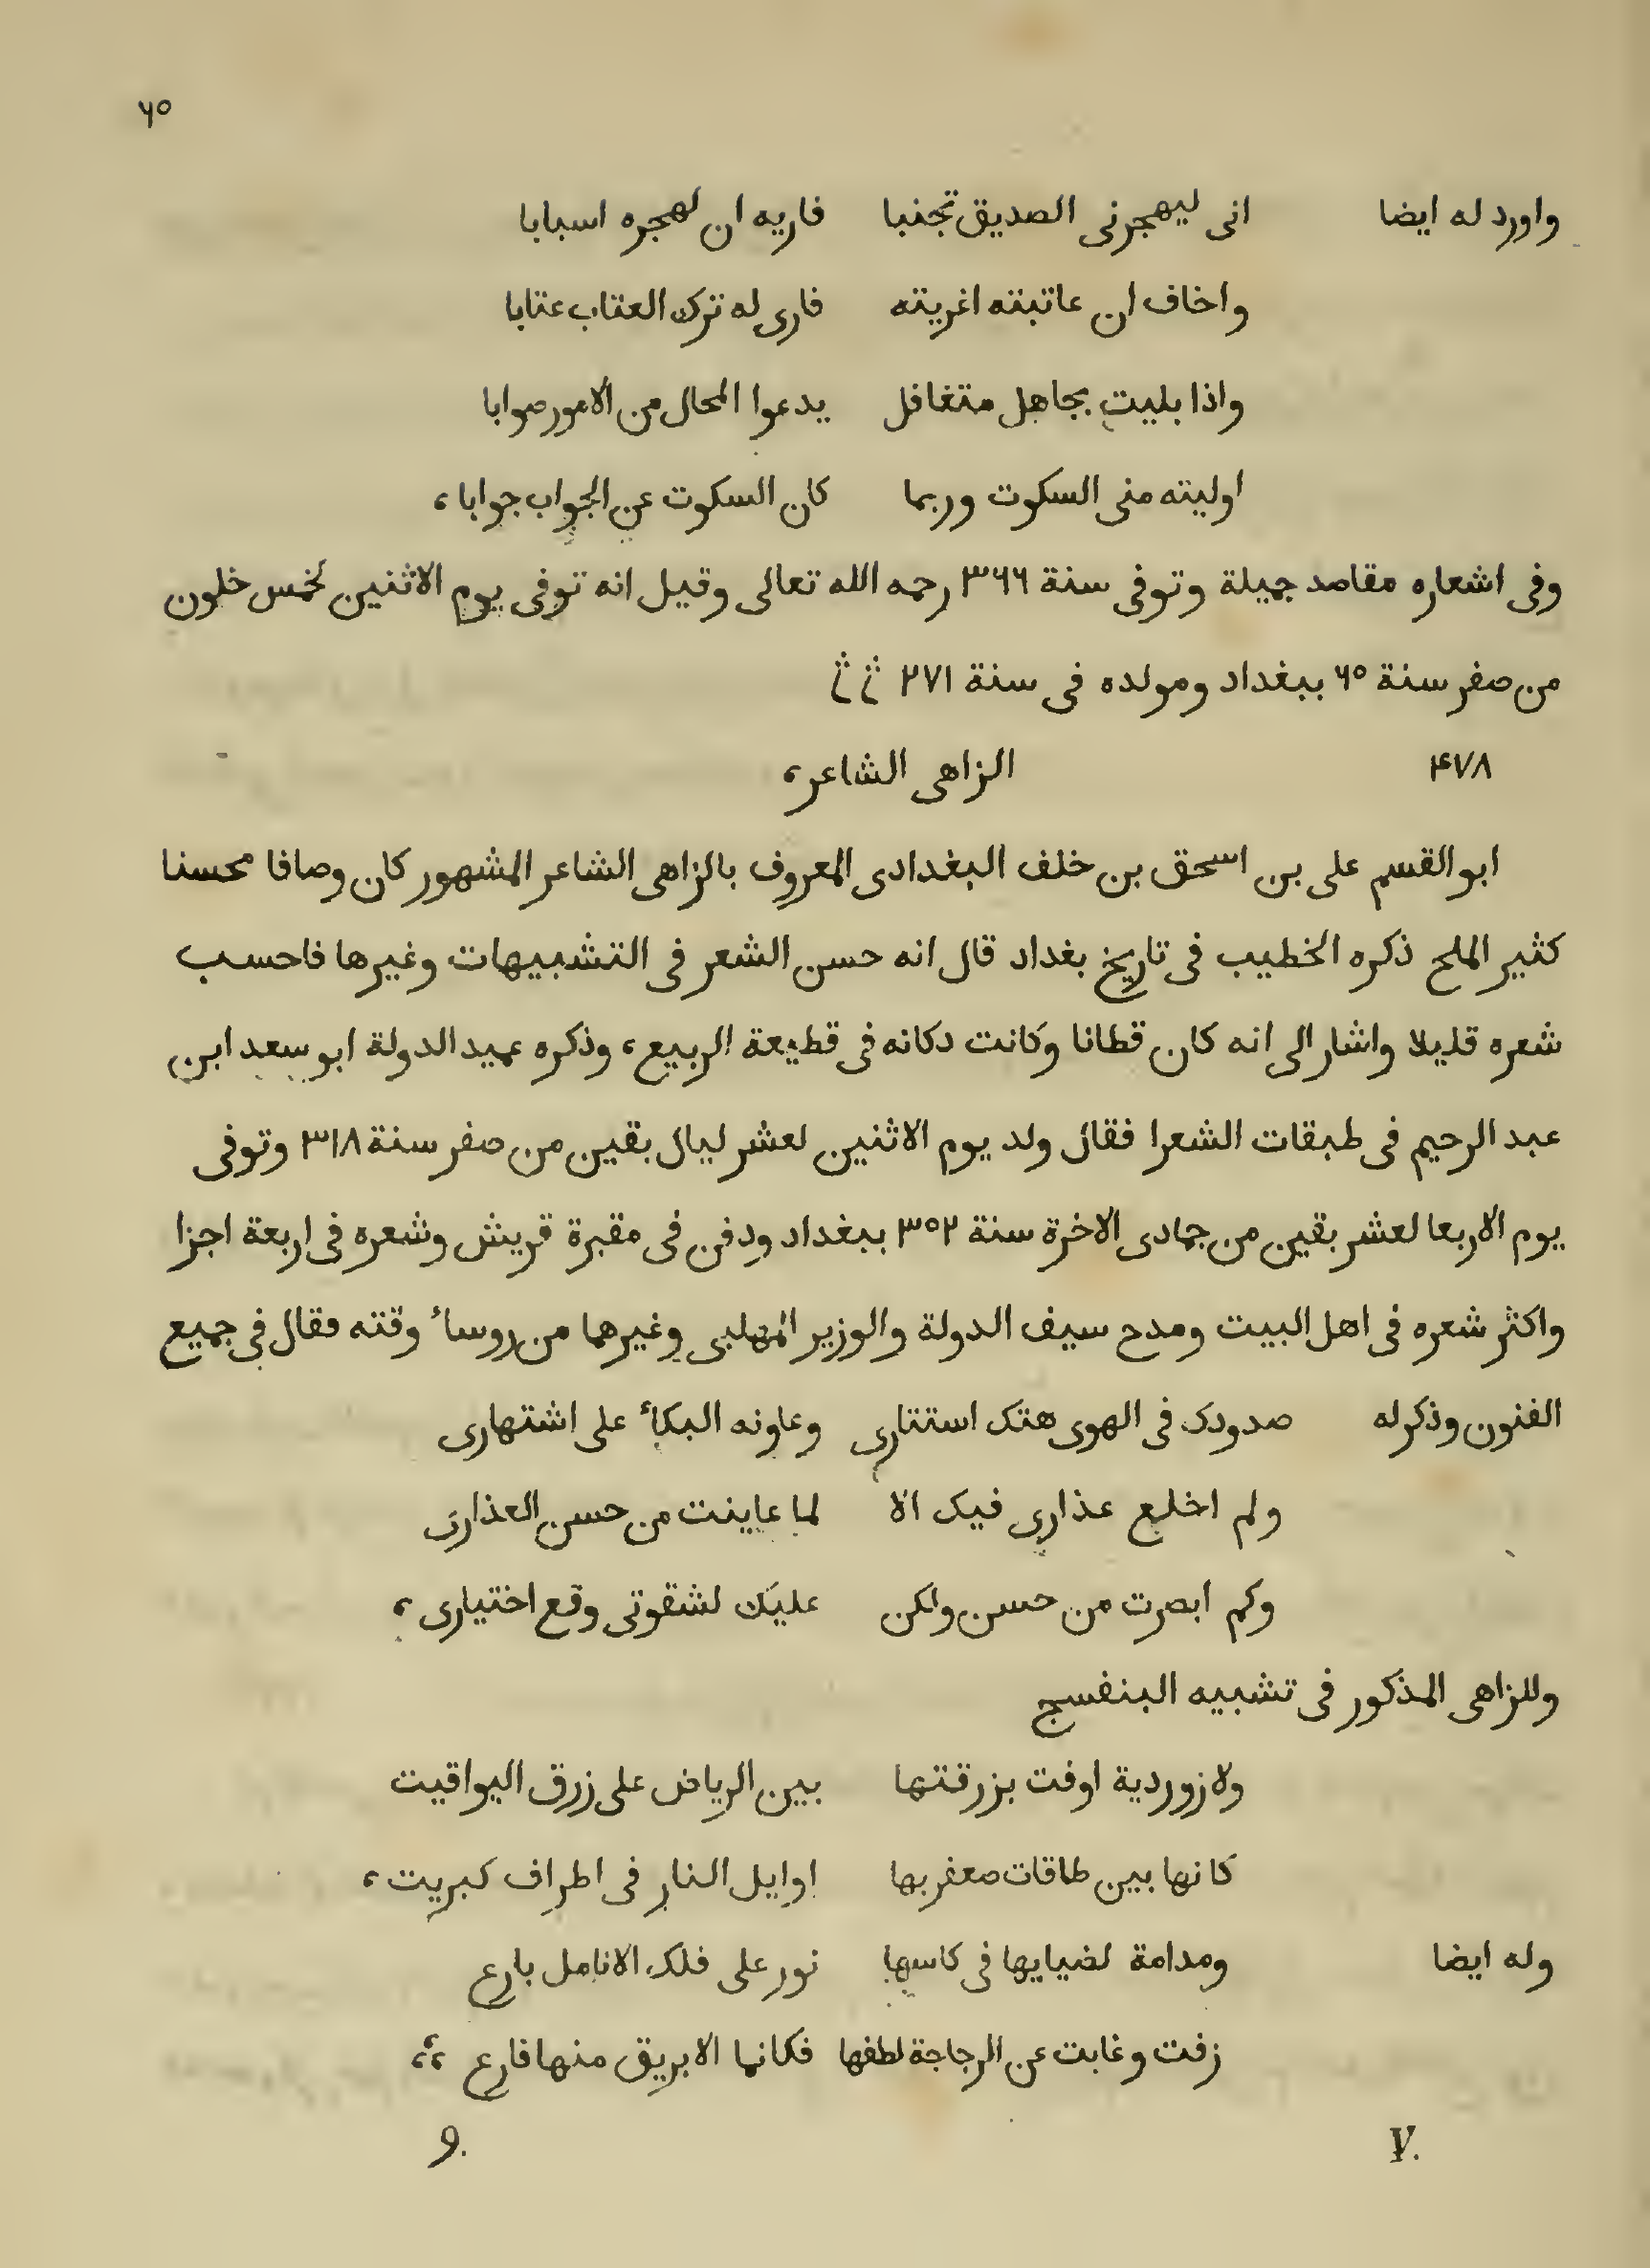 ٦٥
واورد له ايضا انى ليهجرنى الصديق تجنبا فاريه ان لهجره اسبابا
واخاف ان عاتبته اغريته فارى له ترك العتاب عتابا
واذا بليت بجاهل متغافل يدعوا المحال من الامور صوابا
اوليته منى السكوت وربما كان السكوت عن الجواب جوابا ،
وفى اشعاره مقاصد جميلة وتوفى سنة ٣٦٦ رحمه الله تعالى وقيل انه توفى يوم الاثنين لخمس خلون
من صفر سنة ٦٥ ببغداد ومولده فى سنة ٢٧١
٤٧٨ الزاهى الشاعر ،
ابو القسم على بن اسحق بن خلف البغدادى المعروف بالزاهى الشاعر المشهور كان وصافا محسنا
كثير الملح ذكره الخطيب فى تاريخ بغداد قال انه حسن الشعر فى التشبيهات وغيرها فاحسب
شعره قليلا واشار الى انه كان قطانا وكانت دكانه فى قطيعة الربيع ، وذكره عميد الدولة ابو سعد ابن
عبد الرحيم فى طبقات الشعرا فقال ولد يوم الاثنين لعشر ليال بقين من صفر سنة ٣١٨ وتوفى
يوم الاربعا لعشر بقين من جمادى الاخرة سنة ٣٥٢ ببغداد ودفن فى مقبرة قريش وشعره فى اربعة اجزا
واكثر شعره فى اهل البيت ومدح سيف الدولة والوزير المهلبى وغيرهما من روساء وقته فقال فى جميع
الفنون وذكر له صدودك فى الهوى هتك استتارى وعاونه البكاء على اشتهارى
ولم اخلع عذارى فيك الا لما عاينت من حسن العذارى
وكم ابصرت من حسن ولكن عليك لشقوتى وقع اختيارى ،
وللزاهى المذكور فى تشبيه البنفسج
ولازوردية اوفت بزرقتها بين الرياض على زرق اليواقيت
كانها بين طاقات صعفر بها اوايل النار فى اطراف كبريت ،
وله ايضا ومدامة لضيايها فى كاسها نور على فلك الانامل بارع
زفت وغابت عن الزجاجة لطفها فكانما الابريق منها فارع ،،
V. 9.